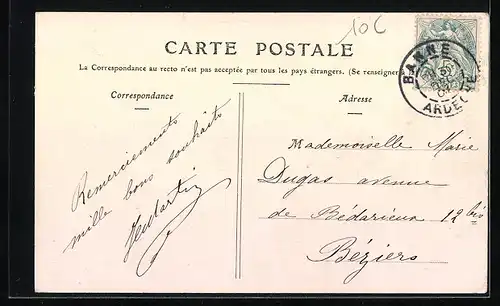 10C
CARTE POSTALE
La Correspondance au recto n'est pas acceptée par tous les pays étrangers. (Se renseigner à
BANNE
ARDECHE
5
Correspondance
Adresse
Remerciements
mille bons souhaits
Mademoiselle Marie
Dugas avenue
de Bédarieux 12 bis
Béziers